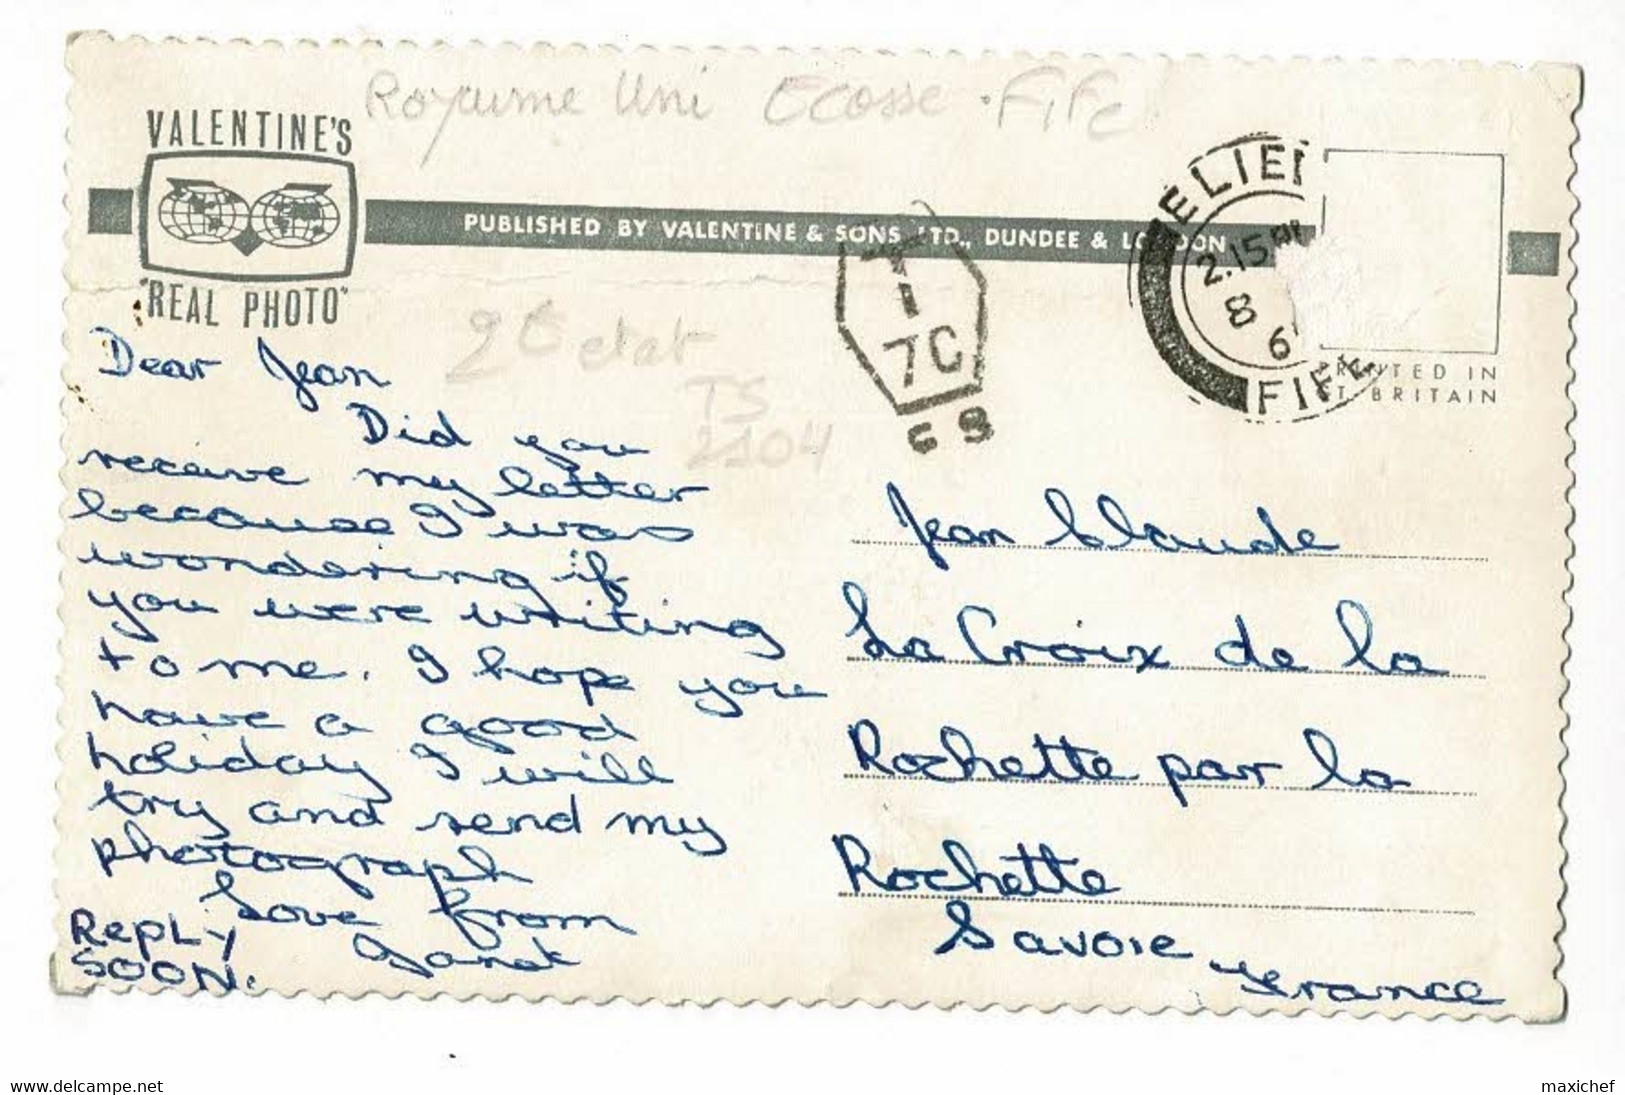 Royaume Uni Ecosse . Fife
VALENTINE'S
PUBLISHED BY VALENTINE & SONS LTD., DUNDEE & LONDON
"REAL PHOTO"
ELIE
2.15 PM
8
6
FIFE
PRINTED IN
GT. BRITAIN
T
7C
GB
2e etat
TS
2104
Dear Jean
Did you
receive my letter
because I was
wondering if
you were writing
to me. I hope you
have a good
holiday I will
try and send my
photograph
Love from
Janet
REPLY
SOON.
Jean Claude
La Croix de la
Rochette par la
Rochette
Savoie
France
www.delcampe.net
maxichef